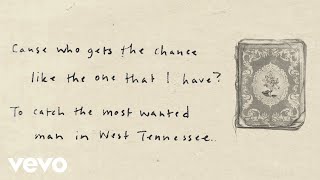 Cause who gets the chance
like the one that I have?
To catch the most wanted
man in West Tennessee..
vevo